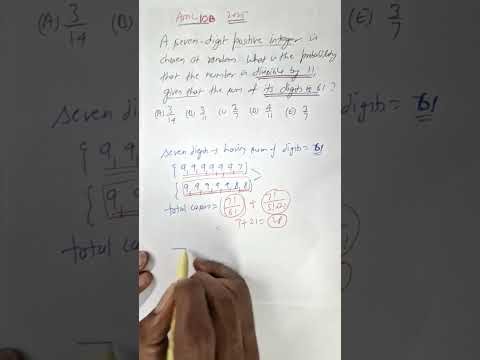 (A) 3/14 (B) (E) 3/7
AMC 12B 2025
A seven-digit positive integer is
chosen at random. What is the probability
that the number is divisible by 11,
given that the sum of its digits is 61?
(A) 3/14 (B) 3/11 (C) 2/7 (D) 4/11 (E) 3/7
digits = 61
seven digits
seven digits having sum of digits = 61
{9,9,9,9,9,9,7}
{9,9,9,9,9,8,8}
total cases = 7!/6! + 7!/5!2!
= 7+21 = 28